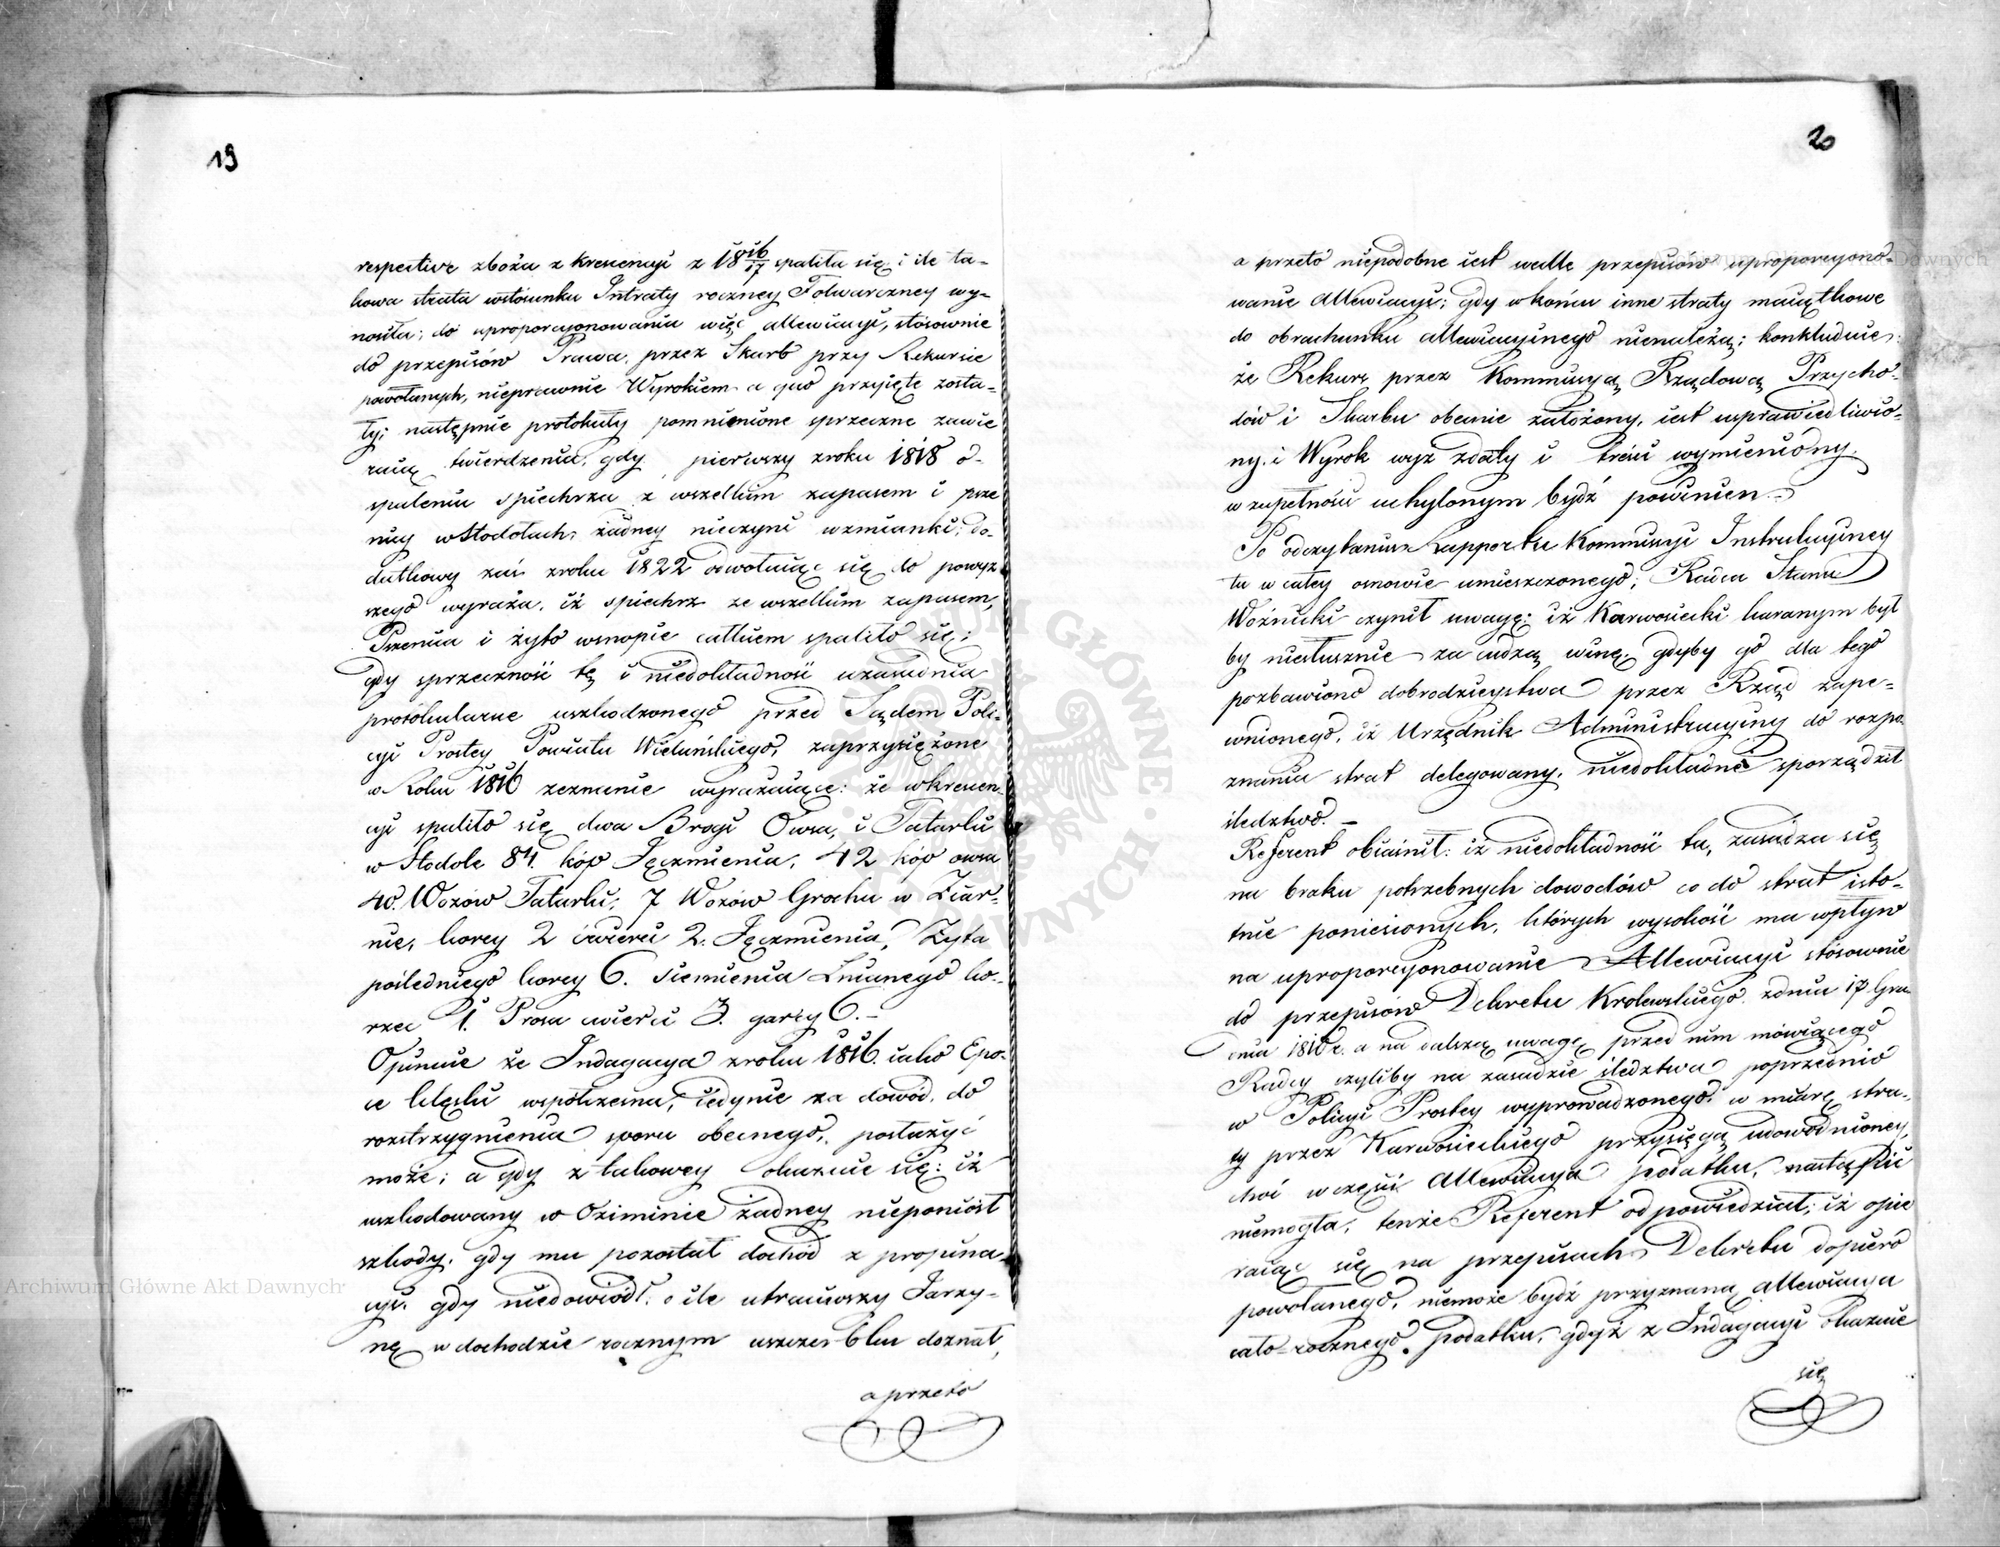 19
respective zboża z krescencyi z 1816/17 spaliła się i ile ta-
kowa strata wstosunku Intraty roczney Folwarczney wy-
nosiła; do uproporcyonowania więc allewiacyi, stósownie
do przepisów Prawa, przez Skarb przy Rekursie
powołanych, nieprawnie Wyrokiem a quo przyięte zosta-
ły; następnie protokuły pomnienione sprzeczne zawie
raią twierdzenia, gdy pierwszy zroku 1818 o-
spaleniu spichrza z wszelkim zapasem i psze
nicy wstodołach, żadney nieczyni wzmianki; do-
datkowy zaś zroku 1822 odwołuiąc się do powyż
szego wyraża, iż spichrz ze wszelkim zapasem,
Pszenica i żyto wsnopie całkiem spaliło się;
gdy sprzeczność tę i niedokładność uzasadnia
protokularne uszkodzonego przed Sądem Poli-
cyi Prostey Powiatu Wieluńskiego, zaprzysiężone
w Roku 1816 zeznanie wyrażaiące: że wkrescen-
cyi spaliło się dwa Brogi Owsa, i Tatarki
w Stodole 84 kóp Jęczmienia, 42 kóp owsa
40. Wozów Tatarki, 7 Wozów Grochu w Ziar-
nie, korcy 2 ćwierci 2. Jęczmienia, Żyta
pośledniego korcy 6. Siemienia Lnianego ko-
rzec 1. Prosa ćwierci 3. garcy 6. –
Opinuie że Indagacya zroku 1816. iako Epo-
ce klęski współczesna, iedynie za dowód, do
rozstrzygnienia sporu obecnego, posłużyć
może; a gdy z takowey okazuie się: iż
uszkodowany w Oziminie żadney nieponiósł
szkody, gdy mu pozostał dochód z propina
cyi, gdy niedowiódł, o ile utraciwszy Jarzy-
nę w dochodzie rocznym uszczerbku doznał,
a przeto
20
a przeto niepodobne iest wedle przepisów uproporcyono-
wanie allewiacyi; gdy w końcu inne straty maiątkowe
do obrachunku allewiacyinego nienależą; konkluduie:
że Rekurs przez Kommissyą Rządową Przycho-
dów i Skarbu obecnie założony, iest usprawiedliwio-
ny, i Wyrok wyż zdaty i treści wymieniony,
w zupełności uchylonym bydź powinien. –
Po odczytaniu Rapportu Kommissyi Instrukcyiney
tu w całey osnowie umieszczonego; Radca Stanu
Woźnicki czynił uwagę: iż Karwosiecki karanym był
by niesłusznie za cudzą winę, gdyby go dla tego
pozbawiono dobrodzieystwa przez Rząd zape-
wnionego, iż Urzędnik Administracyiny do rozpo
znania strat delegowany, niedokładnie sporządził
śledztwo. –
Referent obiaśnił: iż niedokładność ta, zasadza się
na braku potrzebnych dowodów co do strat isto-
tnie poniesionych, których wysokość ma wpływ
na uproporcyonowanie Allewiacyi stósownie
do przepisów Dekretu Krolewskiego zdnia 17 Gru
dnia 1810 r. a na dalszą uwagę przed nim mówiącego
Radcy czyliby na zasadzie śledztwa poprzednio
w Policyi Prostey wyprowadzonego, w miarę stra-
ty przez Karwosieckiego przysięgą udowodnioney,
choć w części Allewiacya podatku, nastąpić
niemogła, tenże Referent odpowiedział; iż opie
raiąc się na przepisach Dekretu dopiero
powołanego, niemoże bydź przyznaną allewiacya
cało-rocznego podatku, gdyż z Indagacyi okazuie
się